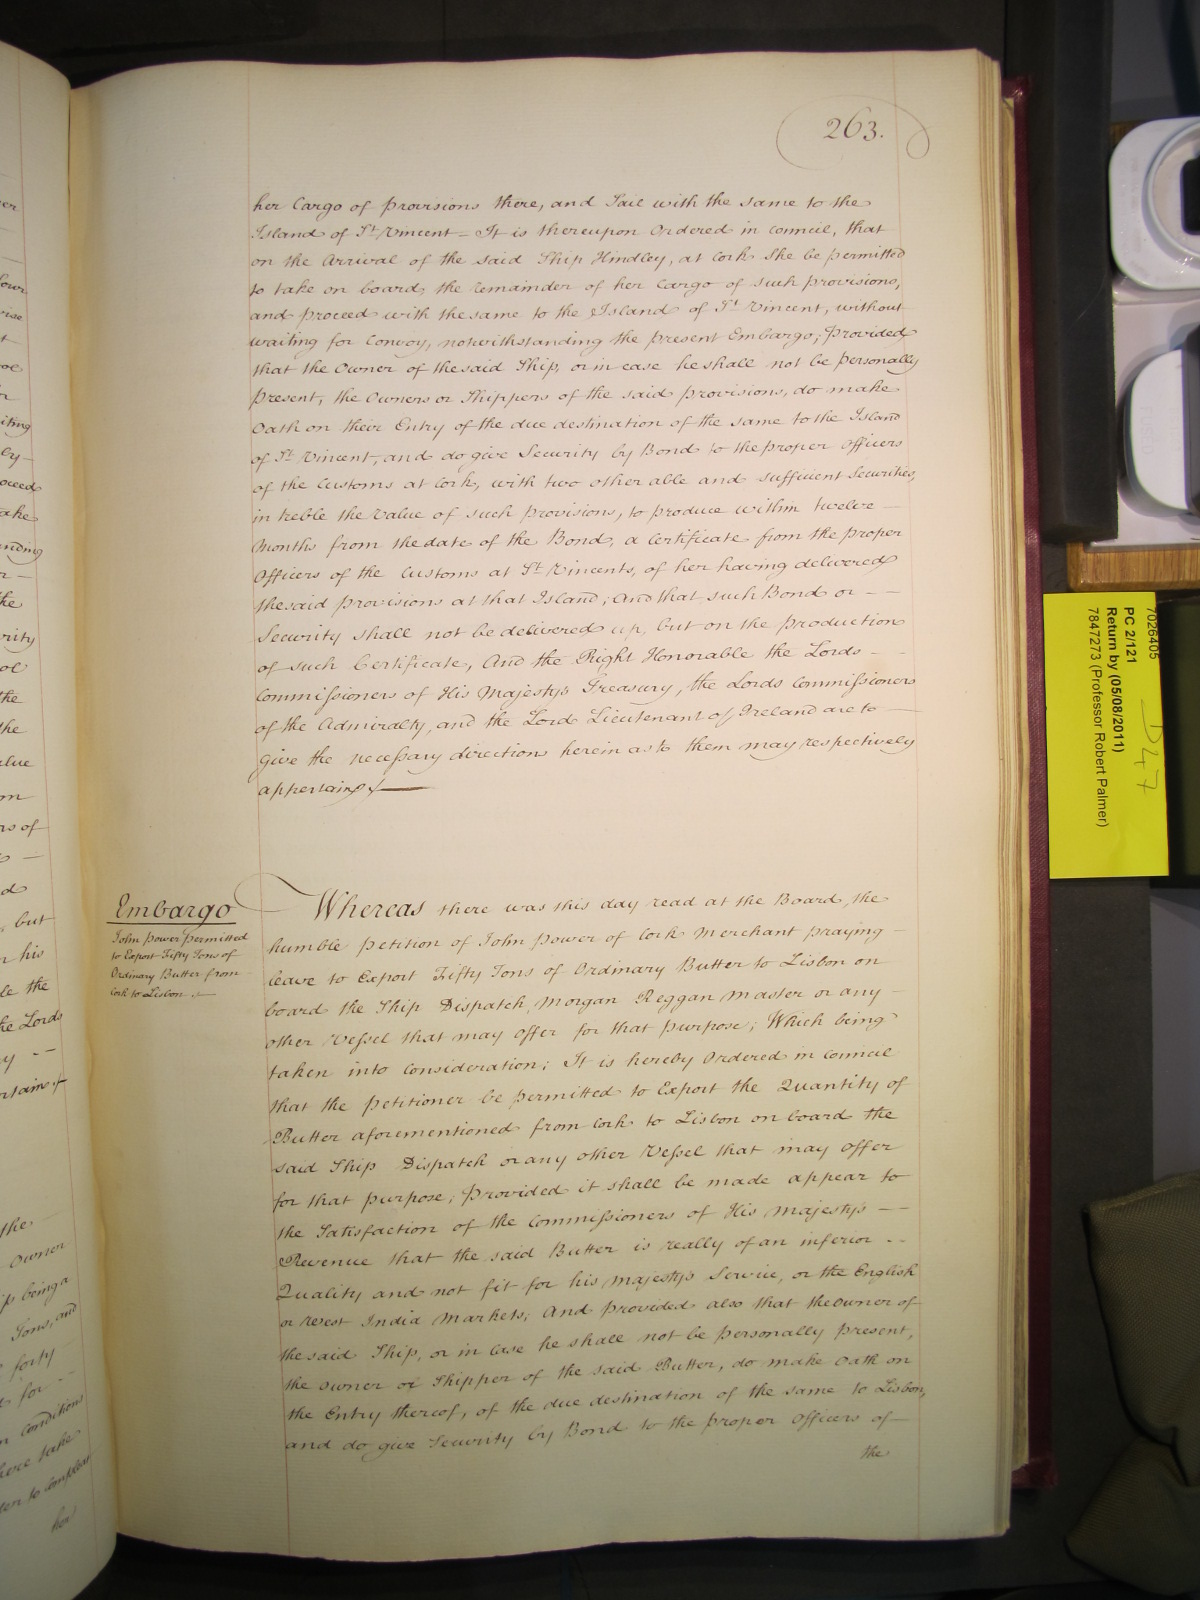 263.
her Cargo of provisions there, and Sail with the same to the
Island of St. Vincent = It is thereupon Ordered in Council, that
on the Arrival of the said Ship Hindley, at Cork She be permitted
to take on board, the remainder of her Cargo of such provisions,
and proceed with the same to the Island of St. Vincent, without
waiting for Convoy, notwithstanding the present Embargo; Provided
that the Owner of the said Ship, or in case he shall not be personally
present, the Owners or Shippers of the said provisions, do make
Oath on their Entry of the due destination of the same to the Island
of St. Vincent, and do give Security by Bond to the proper Officers
of the Customs at Cork, with two other able and sufficient Securities,
in treble the Value of such provisions, to produce within twelve —
Months from the date of the Bond, a Certificate from the proper
Officers of the Customs at St. Vincents, of her having delivered
the said provisions at that Island; And that such Bond or — —
Security shall not be delivered up, but on the production
of such Certificate, And the Right Honorable the Lords — —
Commissioners of His Majestys Treasury, the Lords Commissioners
of the Admiralty, and the Lord Lieutenant of Ireland are to —
give the necessary directions herein as to them may respectively
appertain. —
Embargo
John Power permitted
to Export Fifty Tons of
Ordinary Butter from
Cork to Lisbon. —
Whereas there was this day read at the Board, the
humble petition of John Power of Cork Merchant praying —
leave to Export Fifty Tons of Ordinary Butter to Lisbon on
board the Ship Dispatch, Morgan Reggan Master or any —
other Vessel that may offer for that purpose; Which being
taken into consideration; It is hereby Ordered in Council
that the petitioner be permitted to Export the Quantity of
Butter aforementioned from Cork to Lisbon on board the
said Ship Dispatch or any other Vessel that may offer
for that purpose; Provided it shall be made appear to
the Satisfaction of the Commissioners of His Majestys — —
Revenue that the said Butter is really of an inferior - -
Quality and not fit for his Majestys Service, or the English
or West India Markets; And provided also that the Owner of
the said Ship, or in Case he shall not be personally present,
the Owner or Shipper of the said Butter, do make Oath on
the Entry thereof, of the due destination of the same to Lisbon,
and do give Security by Bond to the proper Officers of —
the
7026405
PC 2/121
Return by (05/08/2011)
7847273 (Professor Robert Palmer)
D47